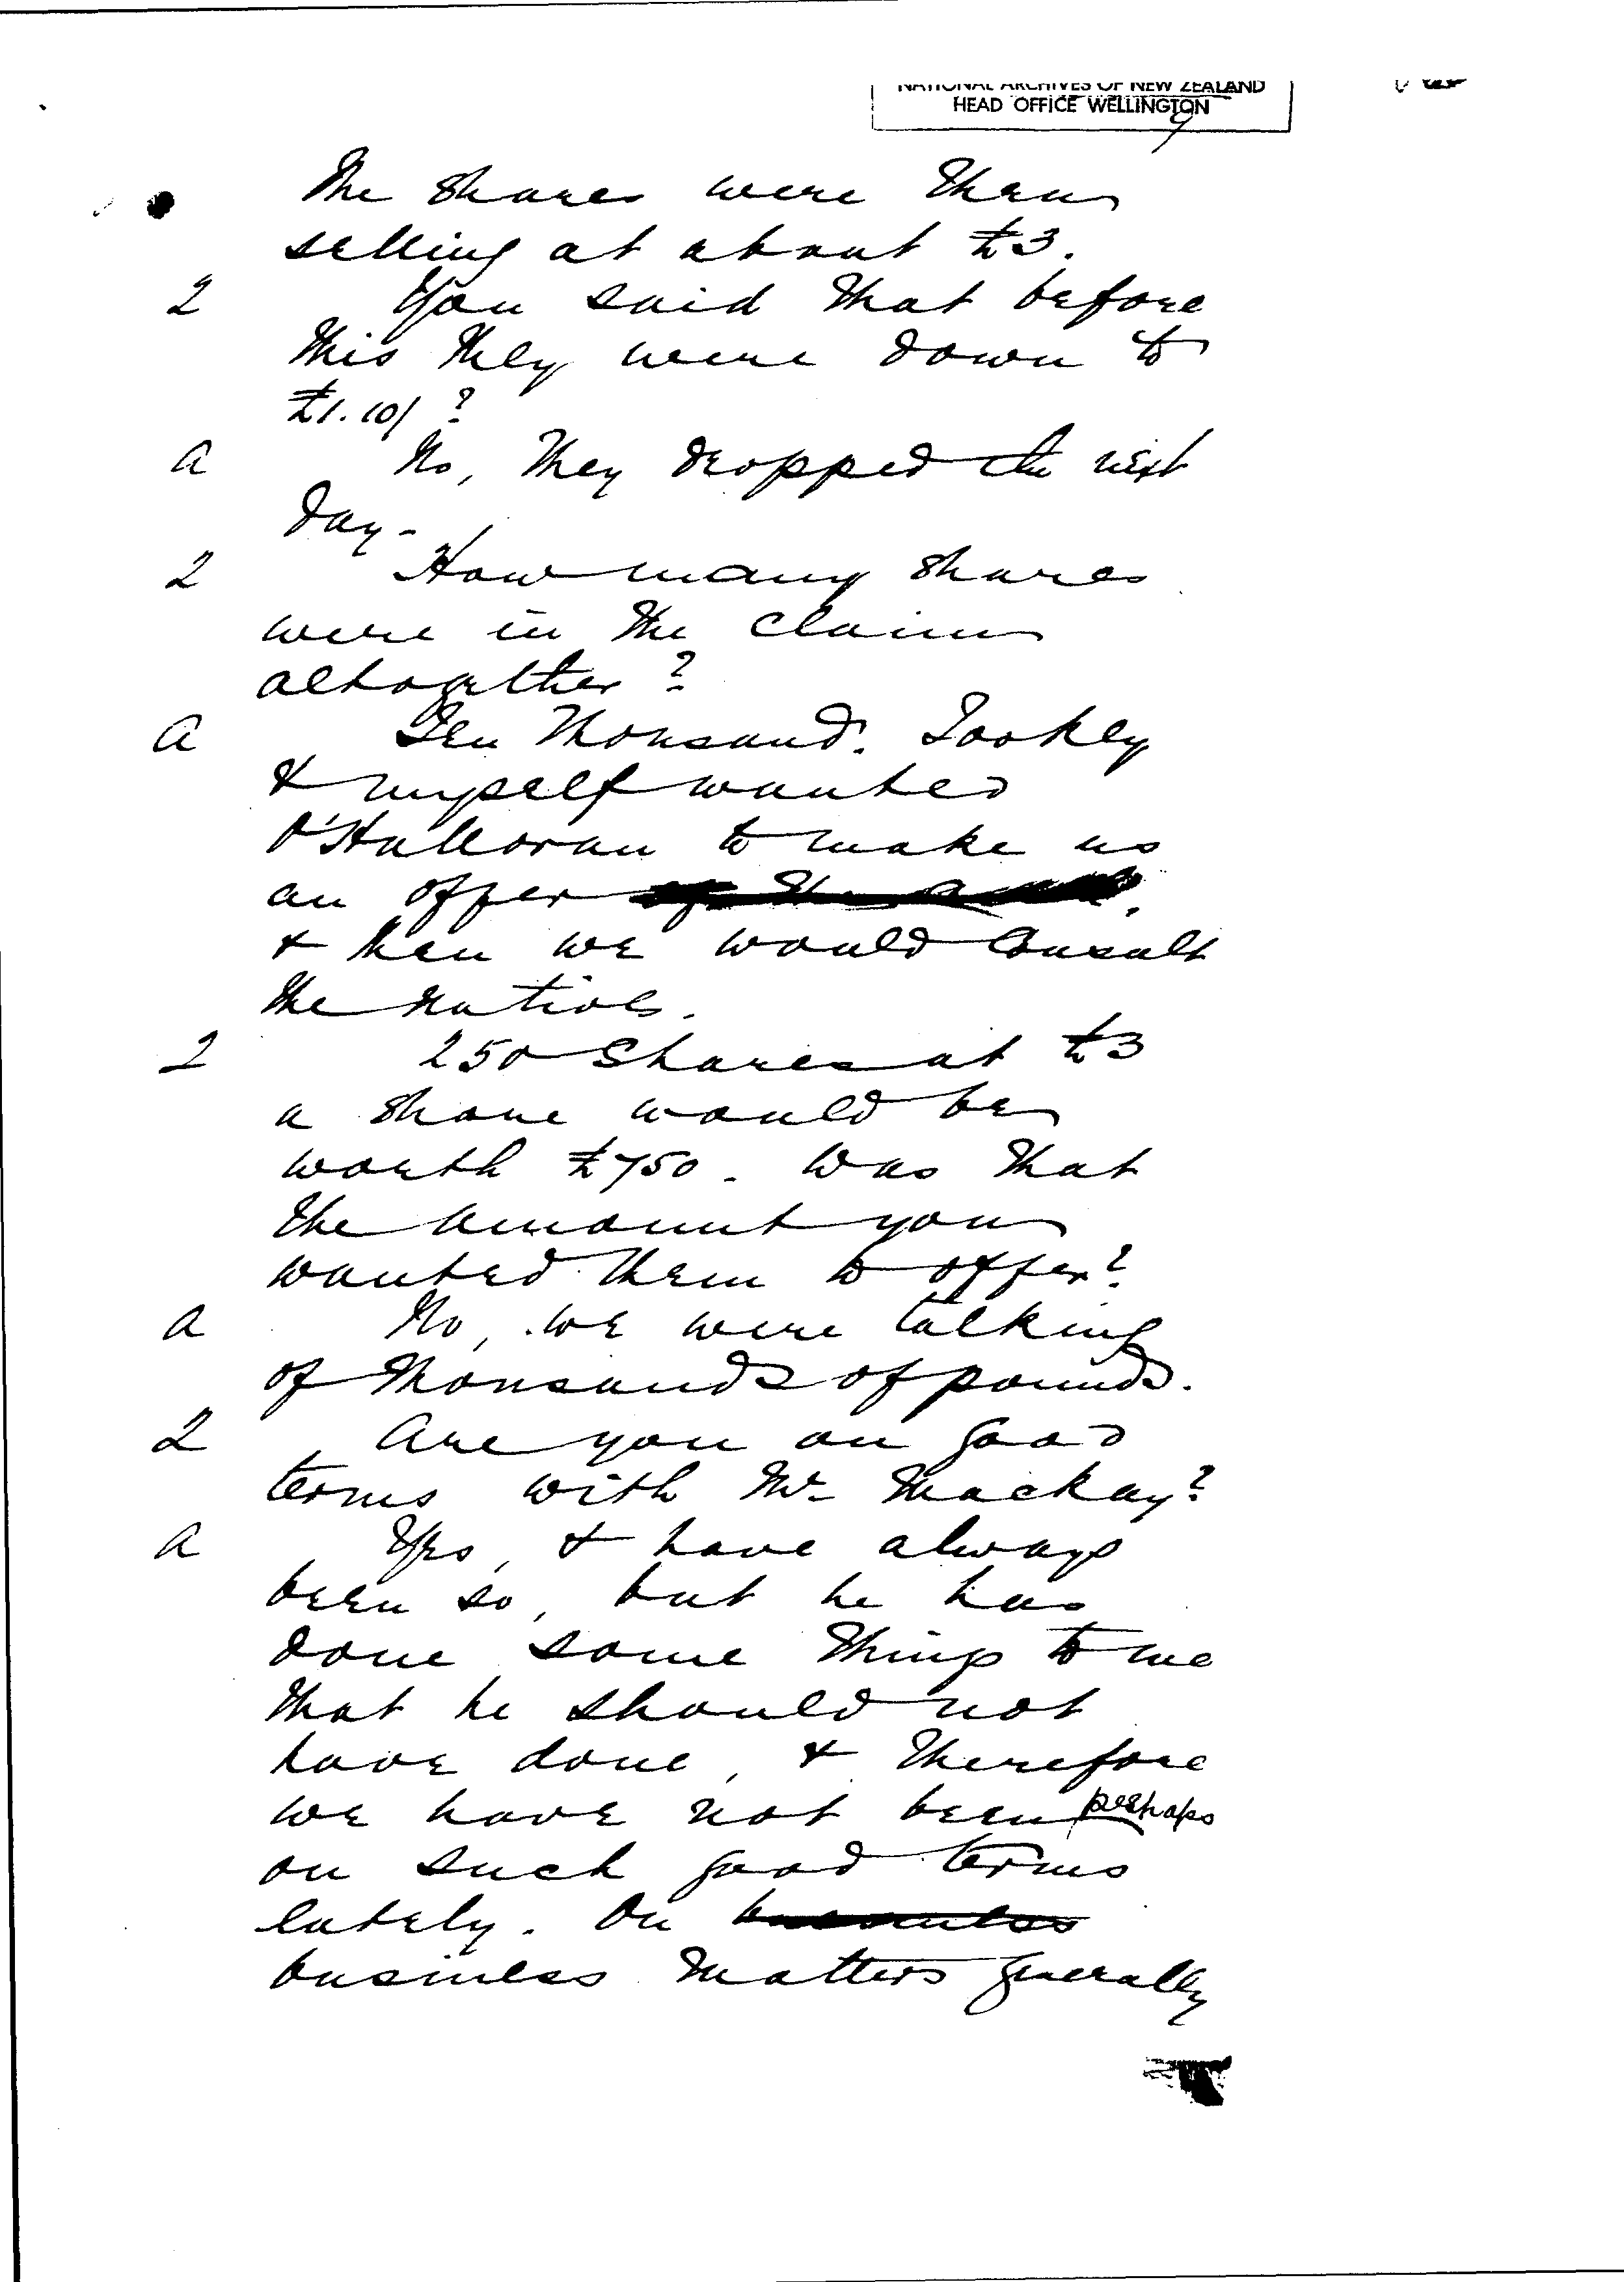 NATIONAL ARCHIVES OF NEW ZEALAND
HEAD OFFICE WELLINGTON
9
The Shares were then
selling at about £3.
Q You said that before
this they were down to
£1.10/ ?
A No, they dropped the next
day -
Q How many shares
were in the claim
altogether ?
A Ten Thousand. Tookey
& myself wanted
O'Halloran to make us
an offer
& then we would Consult
the natives.
Q 250 Shares at £3
a share would be
worth £750 - Was that
the amount you
wanted them to offer?
A No, we were talking
of thousands of pounds.
Q Are you on good
terms with Mr Mackay?
A Yes, & have always
been so, but he has
done some things to me
that he should not
have done, & therefore
we have not been perhaps
on such good terms
lately. On
business matters generally